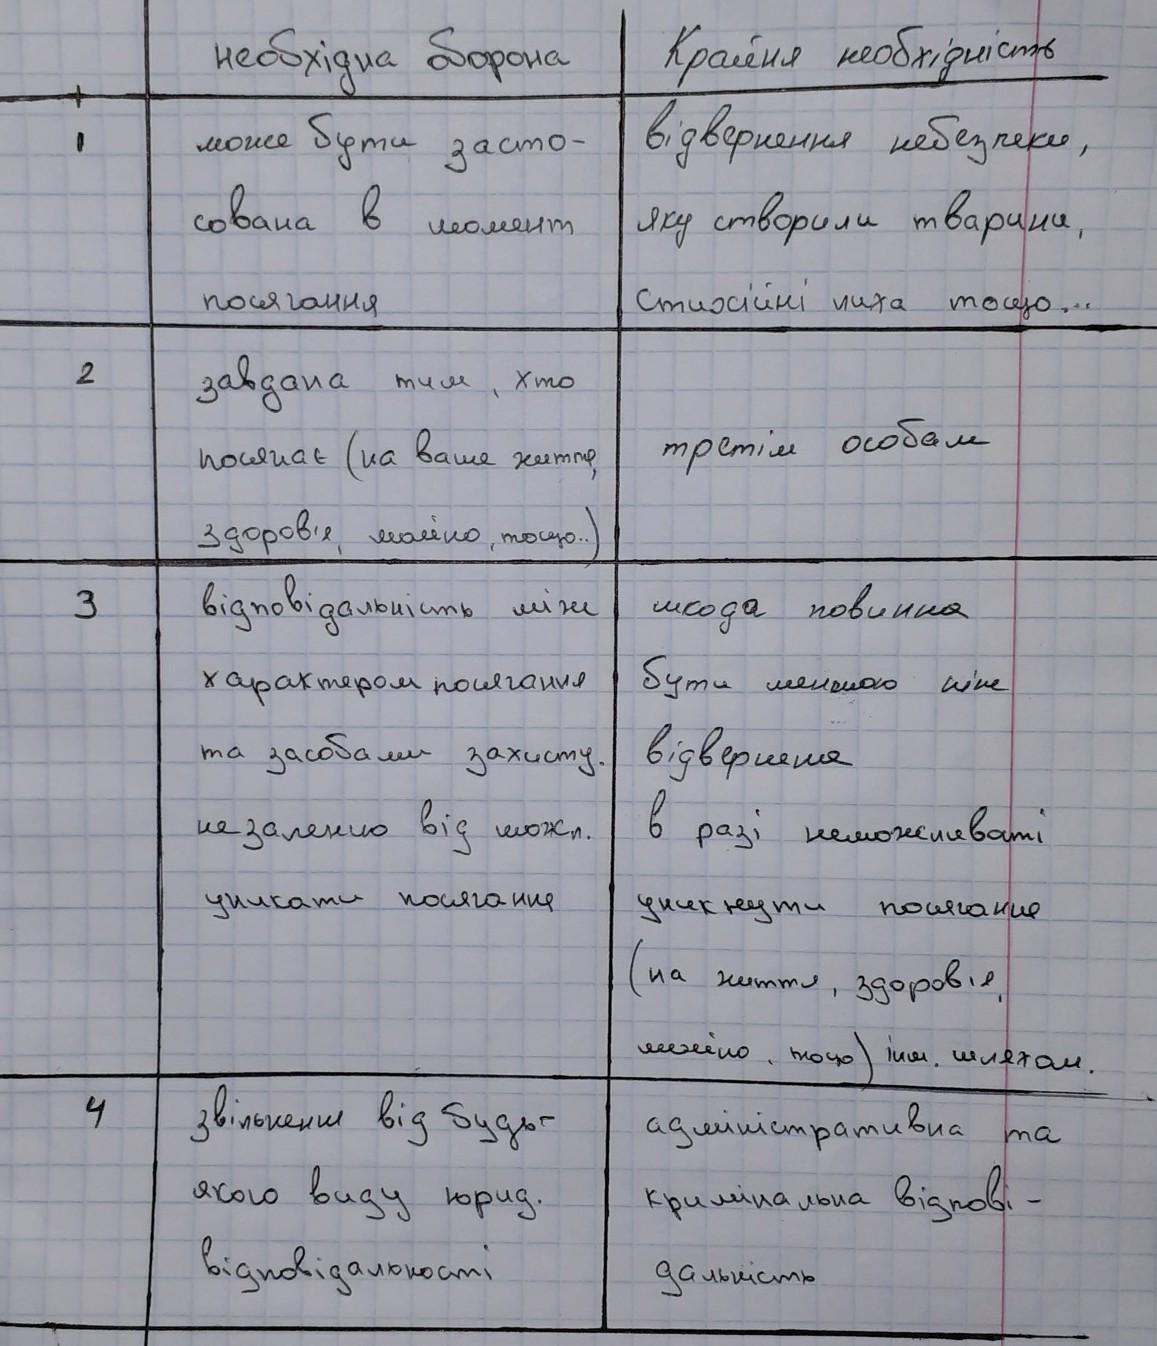 необхідна оборона
Крайня необхідність
1
може бути засто-
сована в момент
посягання
відвернення небезпеки,
яку створили тварини,
стихійні лиха тощо...
2
завдана тим, хто
посягає (на ваше життя,
здоров'я, майно, тощо..)
третім особам
3
відповідальність між
характером посягання
та засобами захисту.
незалежно від можл.
уникати посягання
шкода повинна
бути меншою ніж
відвернена
в разі неможливаті
уникнути посягання
(на життя, здоров'я,
майно, тощо) інш. шляхом.
4
звільнення від будь-
якого виду юрид.
відповідальності
адміністративна та
кримінальна відпові-
дальність